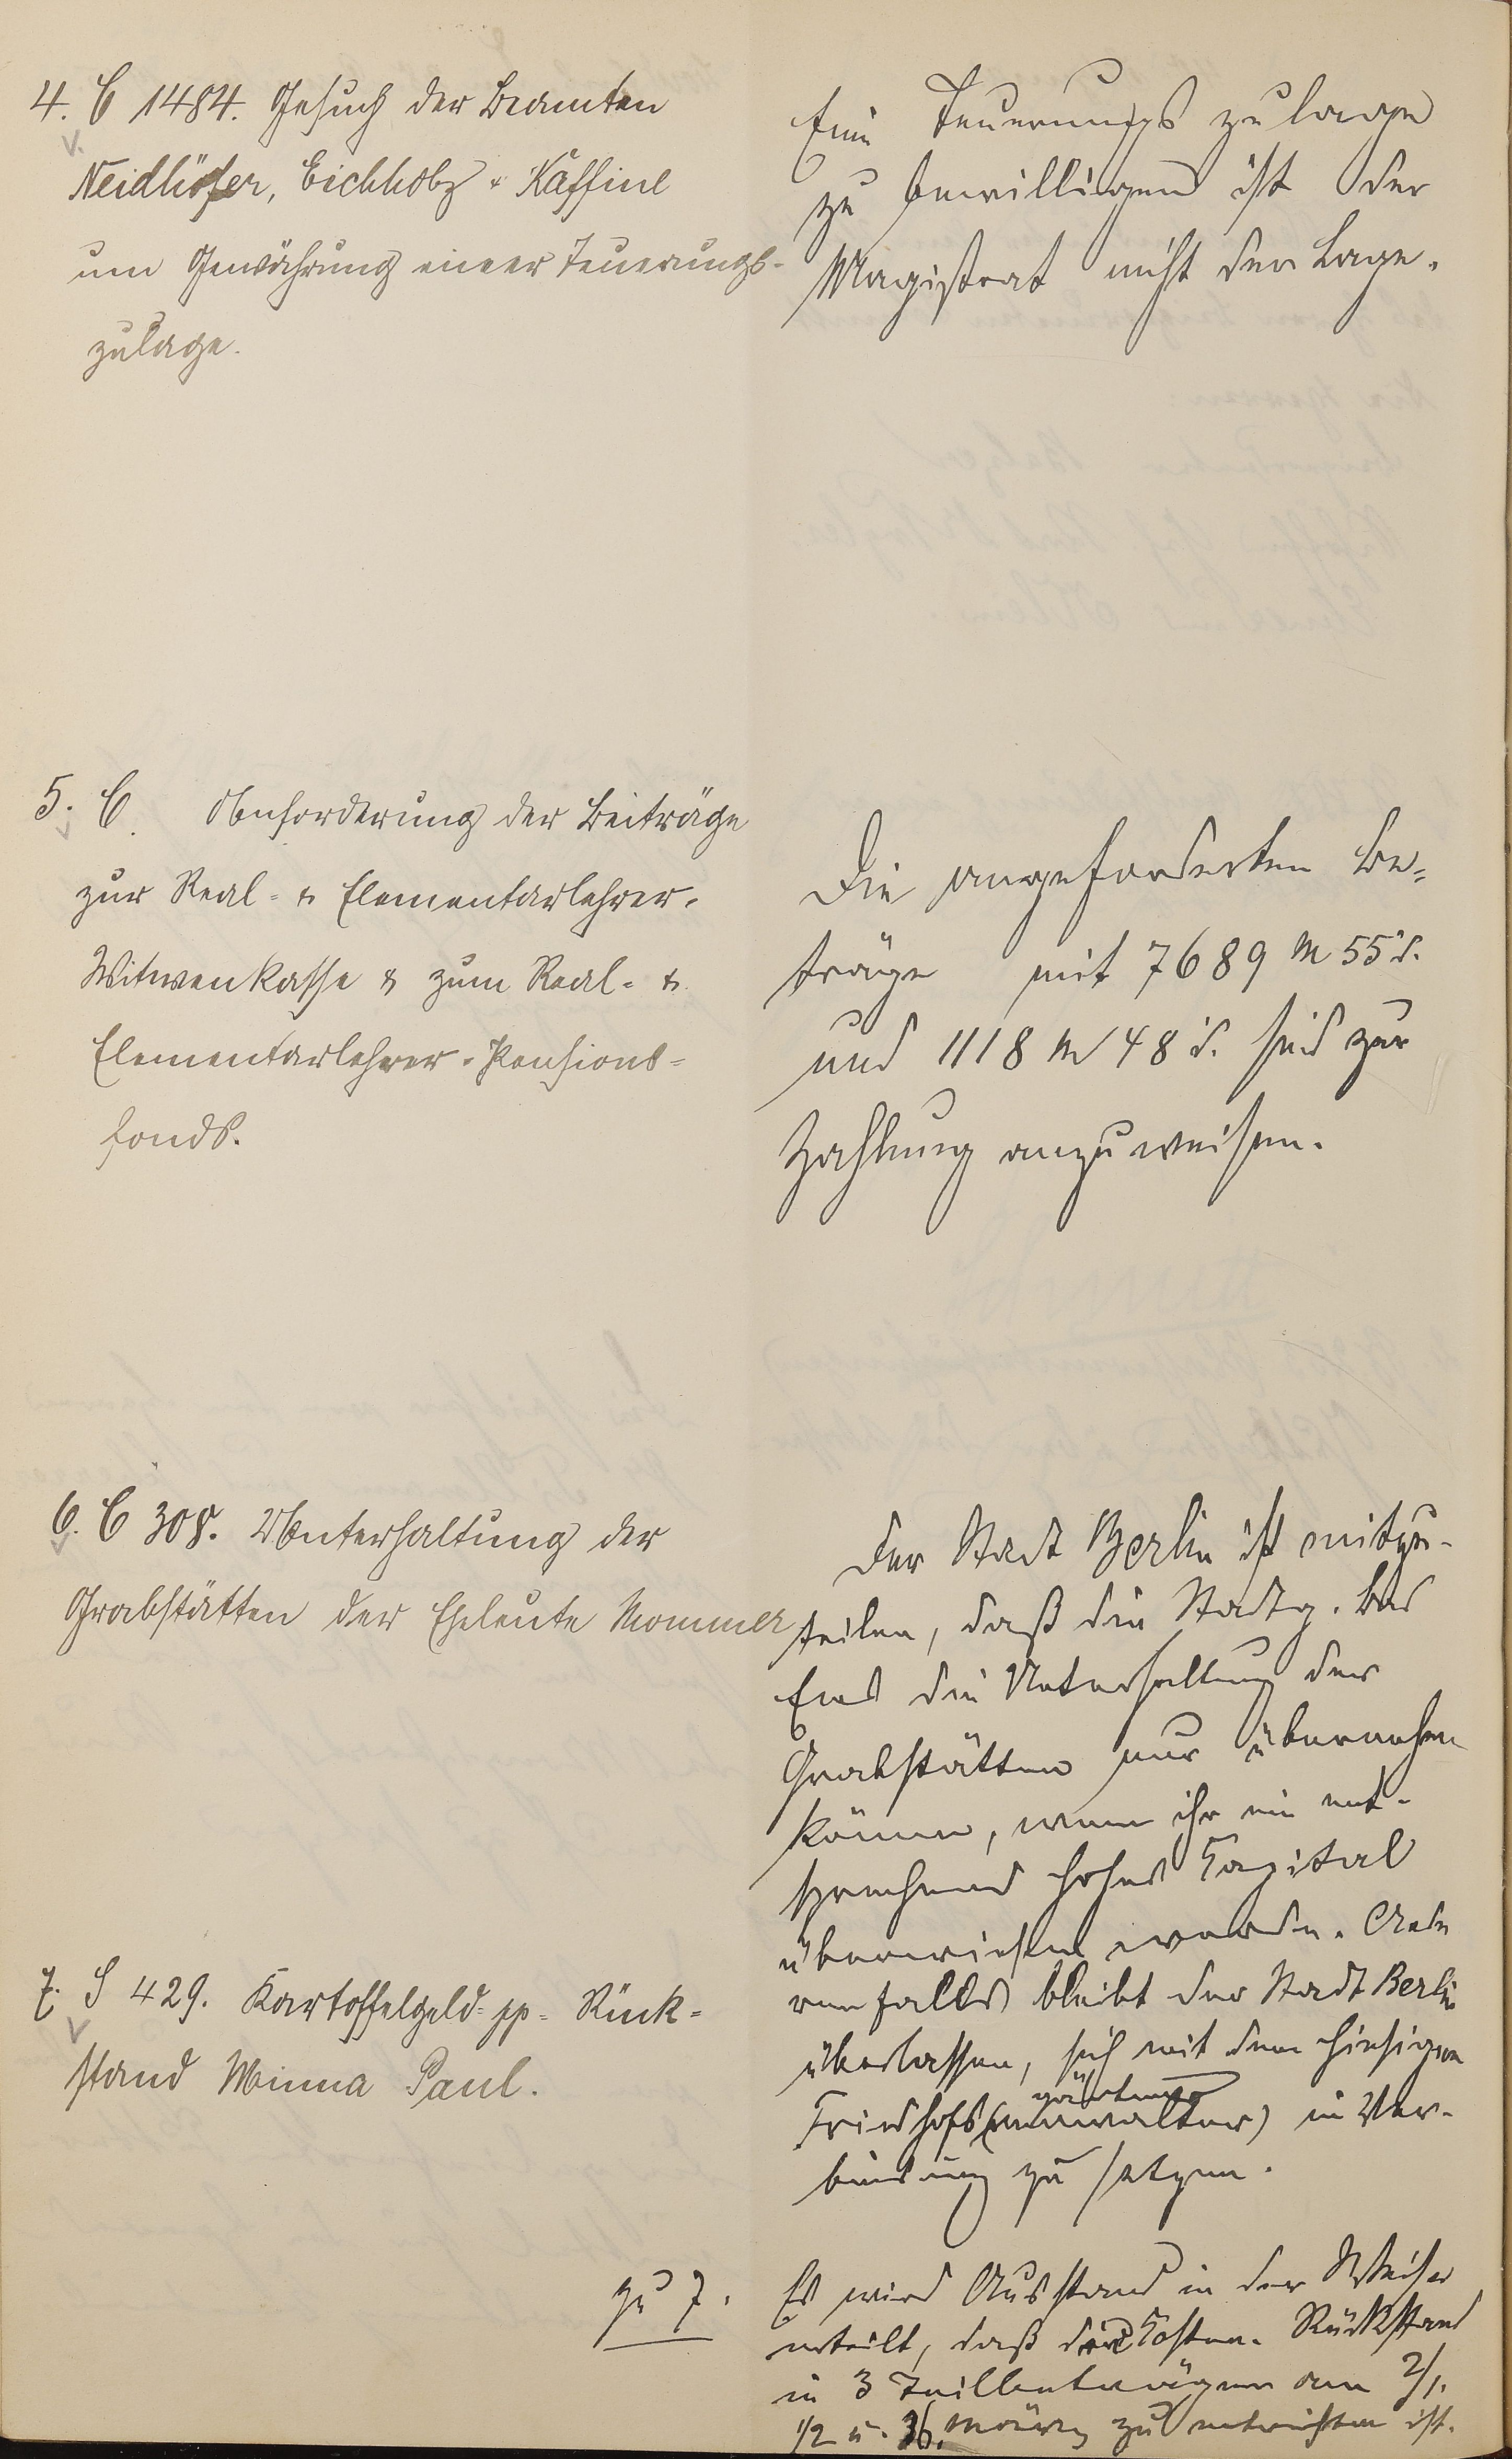 4. C 1484. Gesuch der Beamten
Neidhöfer, Eichholz & Kaffine
um Gewährung einer Teuerungs-
zulage.
Eine Teuerungszulage
zu bewilligen ist der
Magistrat nicht der Lage.
5. C. Anforderung der Beiträge
zur Real- & Elementarlehrer-
Witwenkasse & zum Real- &
Elementarlehrer-Pensions-
fonds.
Die angeforderten Be-
träge mit 7689 M 55 d.
und 1118 M 48 d. sind zur
Zahlung anzuweisen.
6. C 308. Unterhaltung der
Grabstätten der Eheleute Mommer
Der Stadt Berlin ist mitzu-
teilen, daß die Stadtg. Bad
Ems die Unterhaltung der
Grabstätten nur übernehmen
könne, wenn ihr ein ent-
sprechend hohes Kapital
überwiesen werde. Ande
renfalls bleibt der Stadt Berlin
überlassen, sich mit dem hiesigen
gärtner
Friedhofs(verwalter) in Ver-
bindung zu setzen.
7. S 429. Kartoffelgeld- pp- Rück-
stand Minna Paul.
zu 7.
Es wird Ausstand in der Weise
erteilt, daß der Kosten-Rückstand
in 3 Teilbeträgen am 2/1.
1/2 u. März zu entrichten ist.